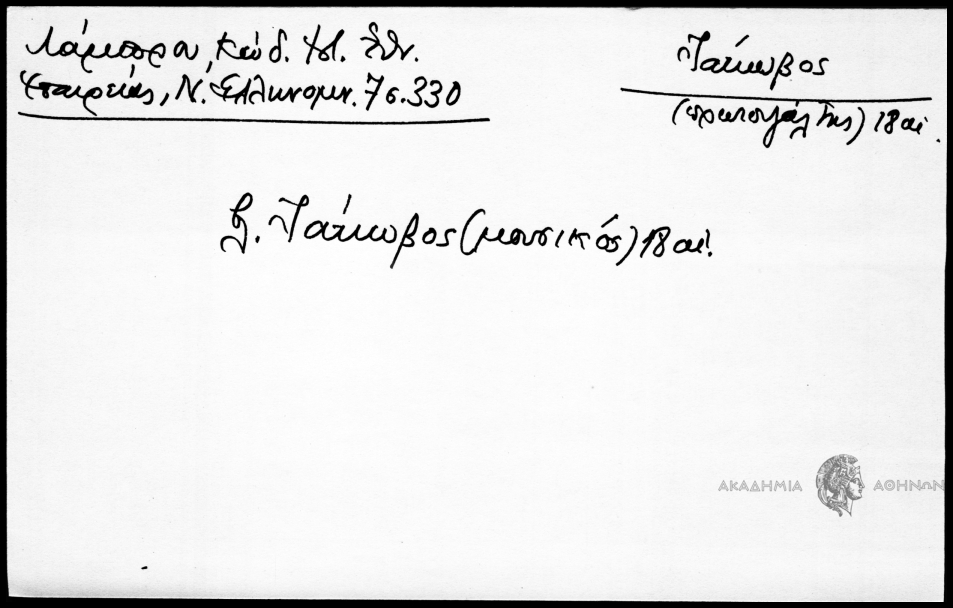 Λάμπρου, Κώδ. Ἱστ. Ἐθν.
Ἑταιρείας, Ν. Ἑλληνομν. 7 σ. 330
Ἰάκωβος
(πρωτοψάλτης) 18 αἰ.
β. Ἰάκωβος (μουσικός) 18 αἰ.
ΑΚΑΔΗΜΙΑ ΑΘΗΝΩΝ